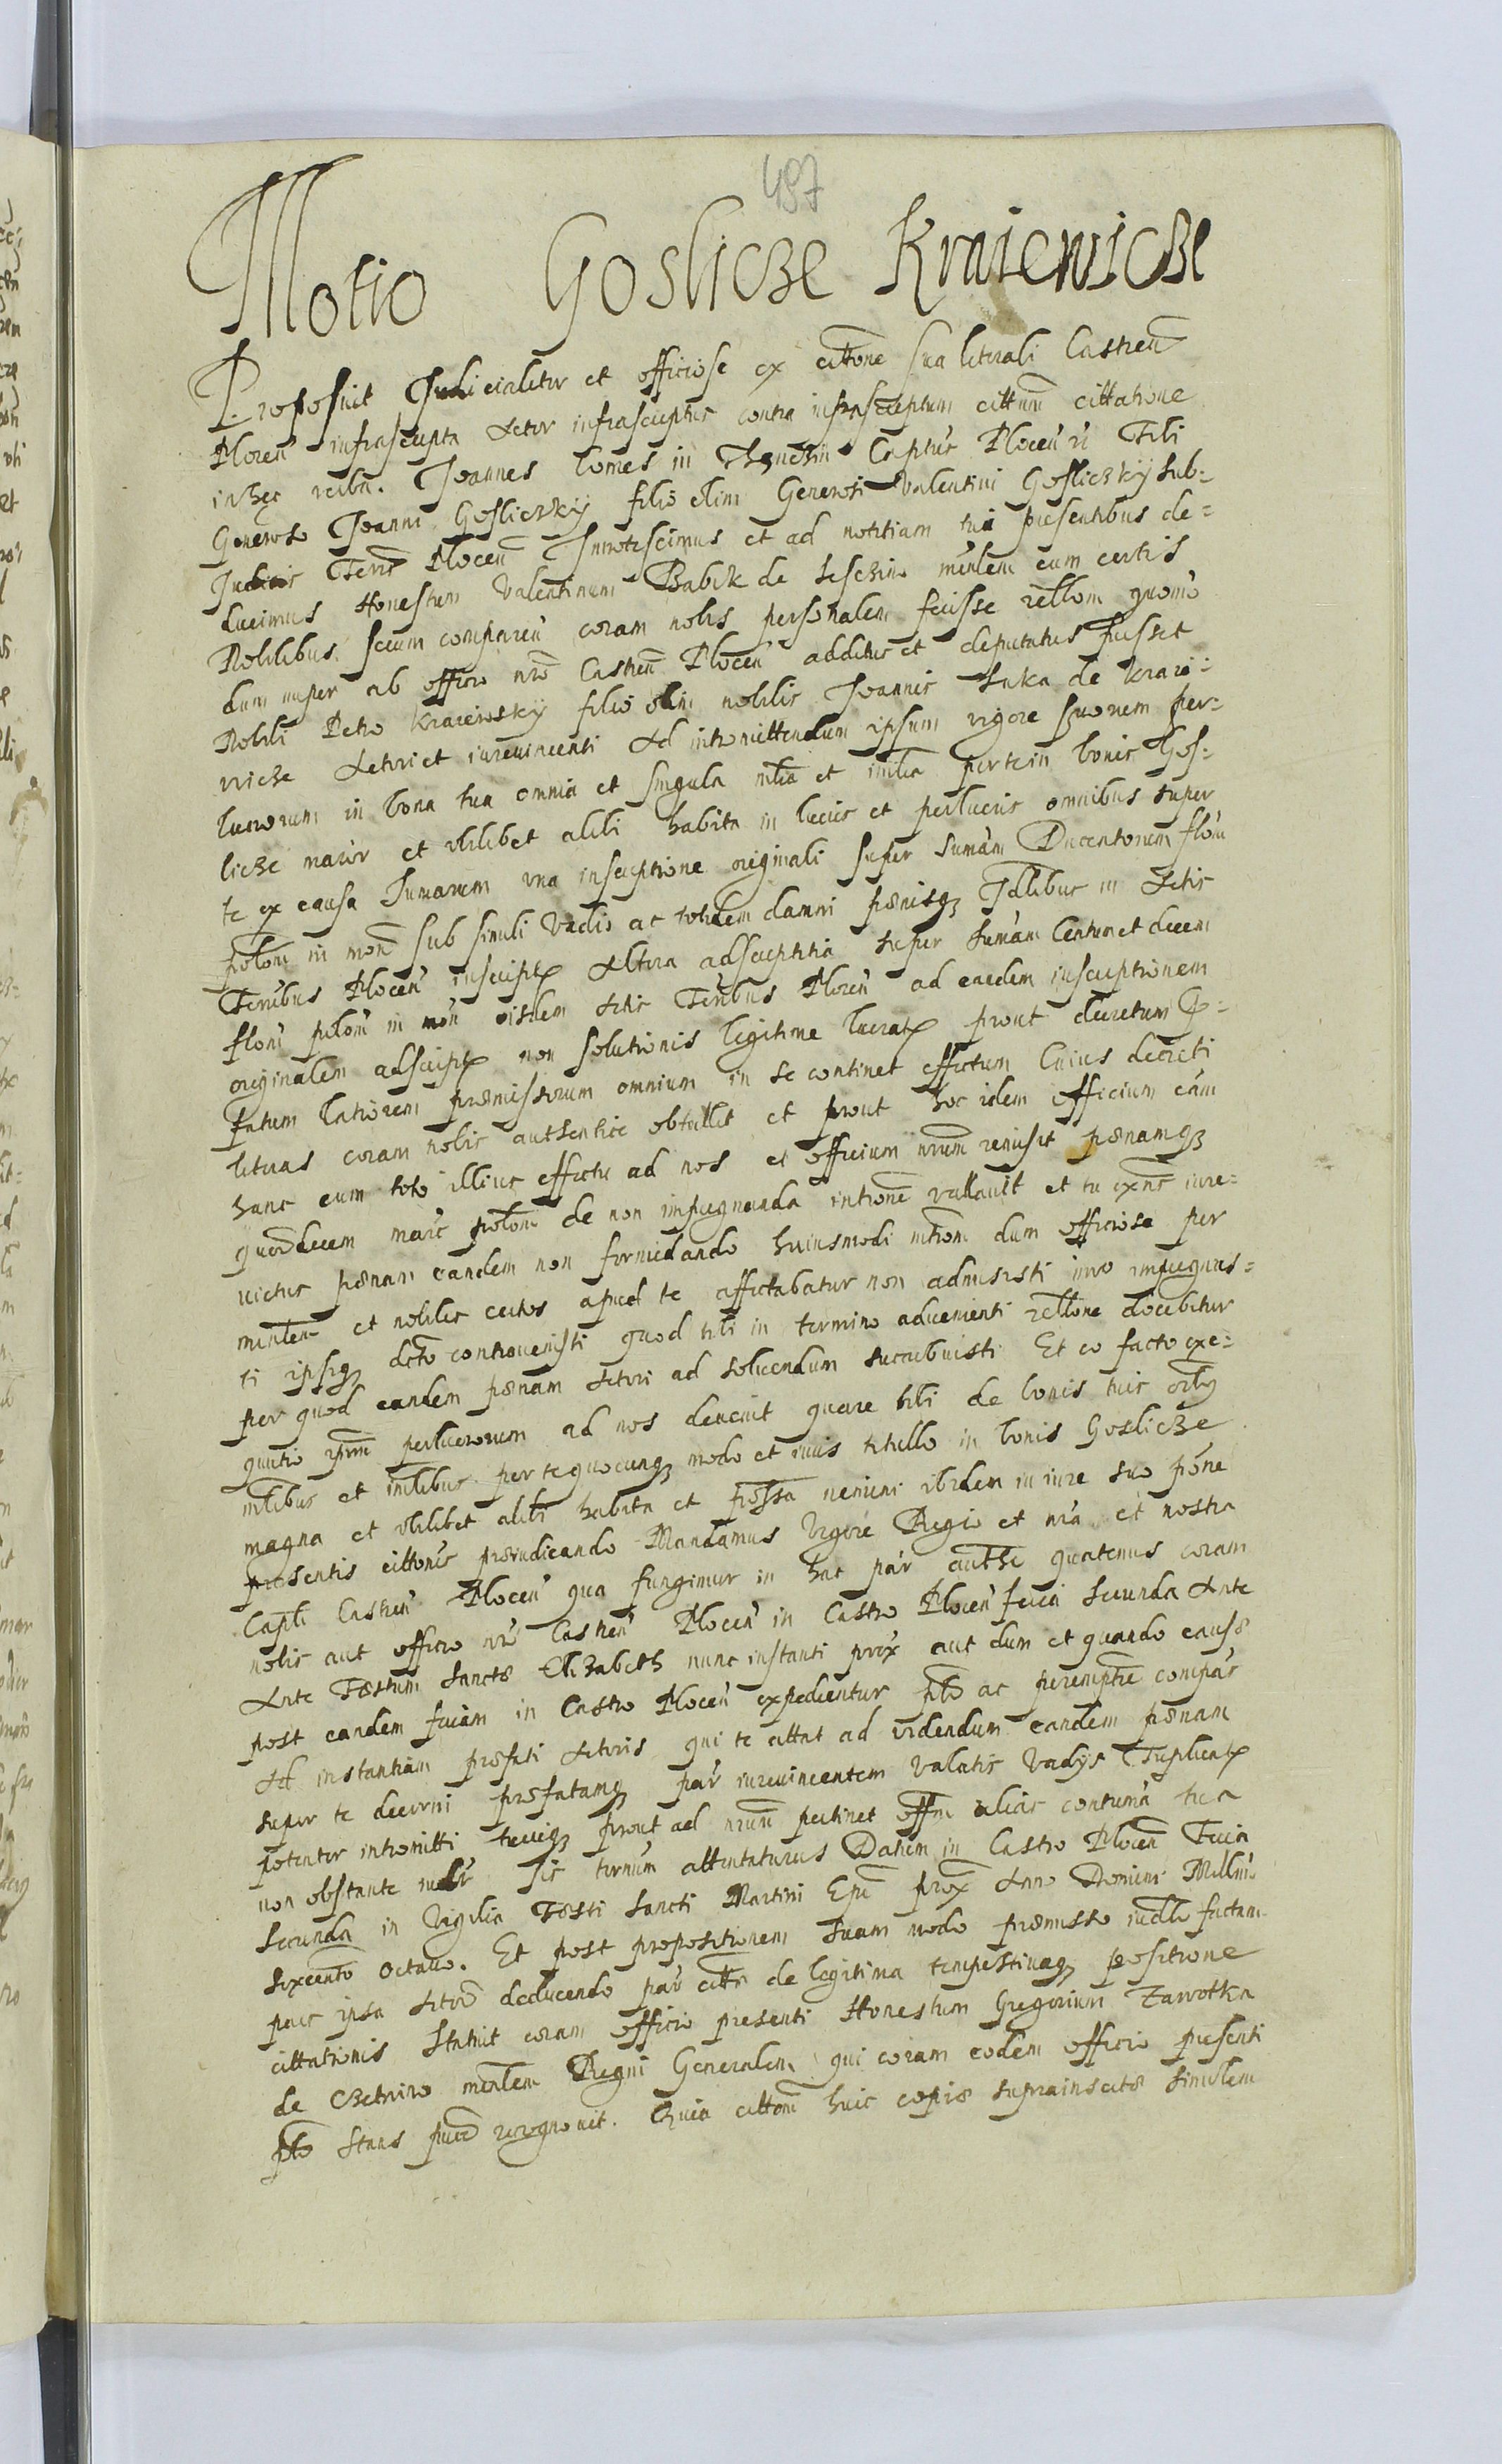 497
Motio Goslicze Kraiewicze
Proposuit Judicialiter et officiose ex cittone sua literali Castren
Plocen infrascripta Actor infrascriptus contra infrascriptum cittatum cittatione
in hec verba. Joannes Comes in Thenczin Captus Plocen ti Tibi
Generoso Joanni Gosliczky filio olim Generosi Valentini Gosliczky sub=
Judicis Terre Plocen Innotescimus et ad notitiam tui presentibus de=
ducimus Honestum Valentinum Babik de minlem cum certis
Nobilibus secum comparen coram nobis personalem fecisse rellom quomo
dum nuper ab officio nro Castren Plocen additus et deputatus fuisset
Nobili Petro Kraiewsky filio olim nobilis Joannis Luka de Kraie=
wicze Actori et iurevincenti Ad intromittendum ipsum vigore suorum per=
lucrorum in bona tua omnia et singula mlia et imlia per te in bonis Gos=
licze maior et ubilibet alibi habita in lucris et perlucris omnibus super
te ex causa sumarum una inscriptione originali super sumam Ducentorum floru
polon in mon sub simili Vadio ac totidem damni penisq Talibus in Actis
Terribus Plocen inscript Altera adscriptitia super sumam Centum et decem
floru polon in mon eisdem Actis Terribus Plocen ad eandem inscriptionem
originalem adscript non solutionis legitime lucrat prout decretum p=
fatum latiorem premissorum omnium in se continet effectum Cuius decreti
literas coram nobis authentice obtullit et prout hoc idem officium eam
hanc cum toto illius effectu ad nos et officium nrum remisit penamq
quordecem marc polon de non impugnanda introne vallavit et tu exns iure=
victus penam eandem non formidando huiusmodi introm dum officiose per
minlem et nobiles certos apud te affectabatur non admisisti imo impugnas=
ti ipsiq dcto contravenisti quod tibi in termino advenienti rellone docebitur
per quod eandem penam Actori ad solvendum succubuisti Et eo facto exe=
quutio ipsm perlucrorum ad nos devenit quare tibi de bonis tuis
mlibus et imlibus per te quocunq modo et iuris titullo in bonis Goslicze
magna et ubilibet alibi habita et possa nemini ibidem in iure suo pone
presentis cittonis preiudicando Mandamus Vigore Regio et nra et nostra
Capli Castren Plocen qua fungimur in hac par authe quatenus coram
nobis aut officio nro Castren Plocen in Castro Plocen feria secunda Ante
Ante Festum Sancte Elizabeth nunc instanti prox aut dum et quando cause
post eandem feriam in Castro Plocen expedientur plr ac peremptre compar
Ad instantiam prefati Actoris qui te cittat ad videndum eandem penam
super te decerni prefatamq par iurevincentem valatis Vadys Triplicat
potenter intromitti prout ad nrum pertinet offm alias contuma tua
non obstante iudlr sis ternum attentaturus Datum in Castro Plocen Feria
Secunda in Vigilia Festi Sancti Martini Epi prox Anno Domini Millmo
sexcento Octavo. Et post propositionem suam modo premisso iudlr factam
pars ipsa Actore deducendo par citte de legitima tempestivaq positione
cittationis statuit coram officio presenti Honestum Gregorium Zawotka
de minlem Regni Generalem qui coram eodem officio presenti
plr stans puce recognovit. Quia cittom huic copie suprainscte similem